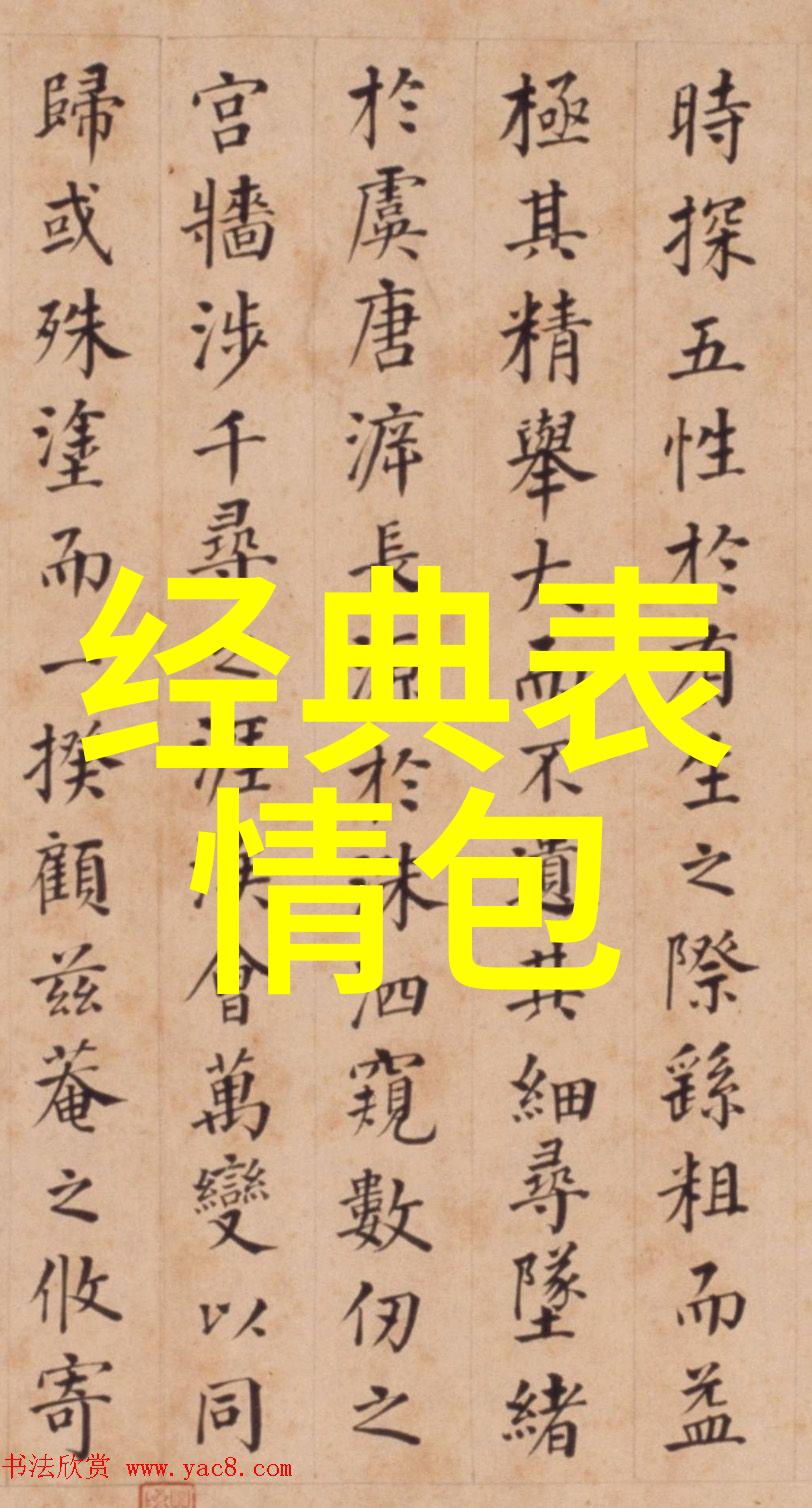 時探五性於有生之際繇粗而益
極其精舉大而不遺其細尋墜緒
於虞唐長源於洙泗窺數仞之
宮牆涉千尋之涯涘會萬變以同
歸或殊塗而一揆顧茲菴之攸寄
经典表
情包
书法欣赏 www.yac8.com